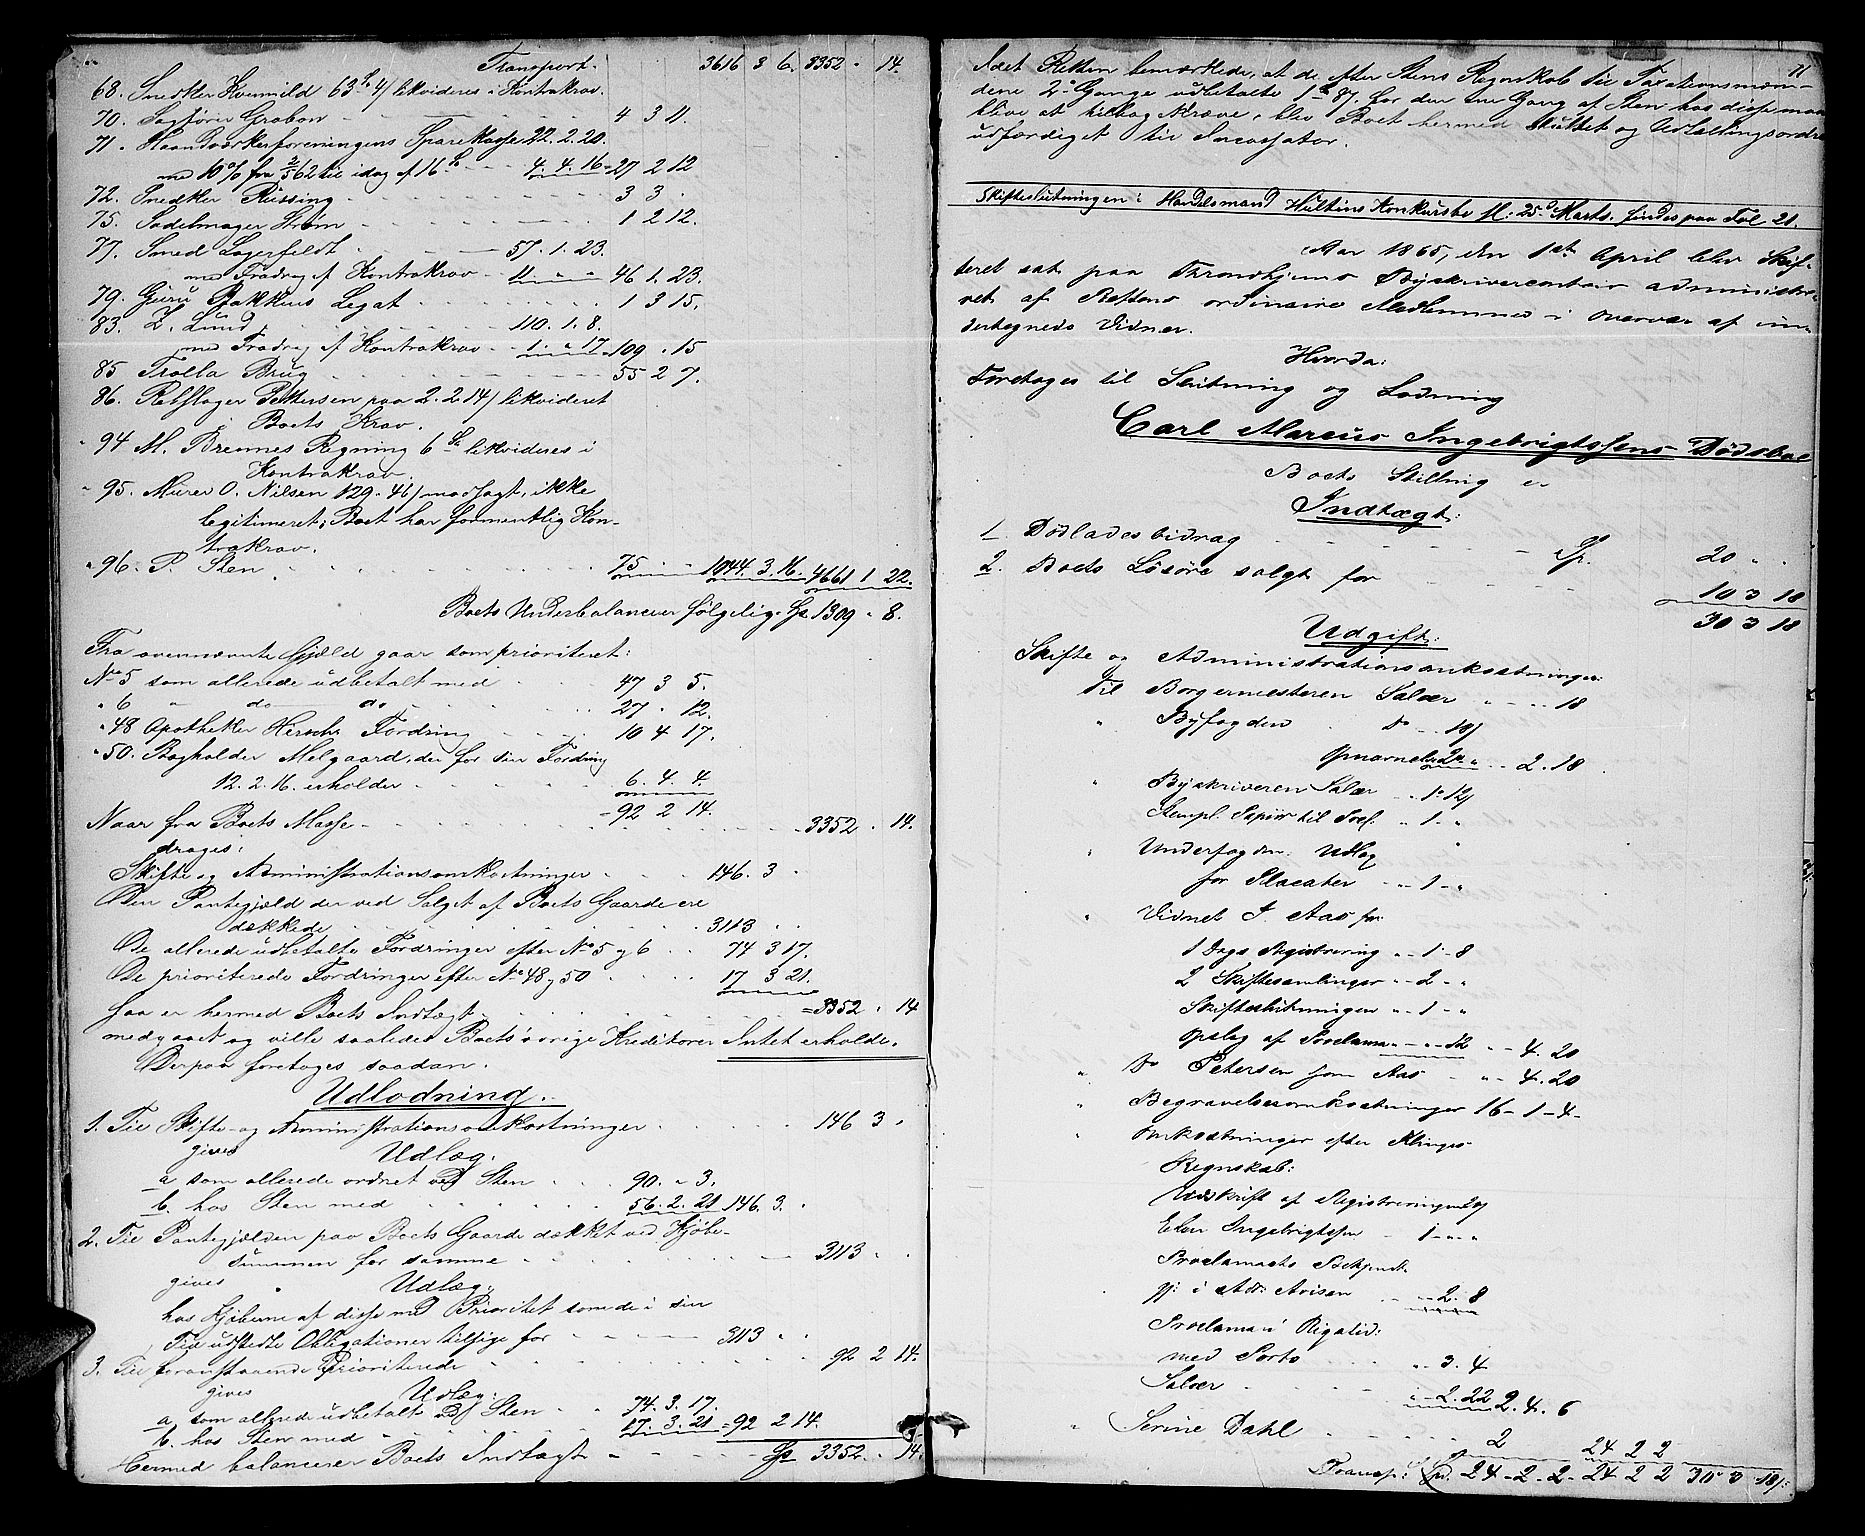 Transport. 3616 3 6. 3352 - 14.
68. Snedker Hvermild 63 4/ likvideres i Kontrakrav.
70. Sagfører Grabow 4 3 11.
71. Haandværkerforeningens Sparekasse 22. 2. 20.
med 10% fra 2/5 62 til idag af 16 4. 4. 16 = 27 2 12
72. Snedker Rissing 3 3 .
75. Sadelmager Strøm 1 2 12.
77. Smed Lagerfeldt 57. 1. 23.
med Fradrag af Kontrakrav 11 46 1. 23.
79. Guru Bakkens Legat 1 3 15.
83. L. Lund 110. 1. 8.
med Fradrag af Kontrakrav 1. " 17 109 " 15
85 Trolla Brug 55 2 7.
86. Rebslager Pettersen paa 2. 2 14/ likvideret
i Boets Krav.
94 M. Brennes Regning 6 likvideres i
Kontrakrav.
95. Murer O. Nilsen 129. 46/ modsagt, ikke
legitimeret; Boet har formentlig Kon-
trakrav.
96. P. Sten 75 - - 1044. 3. 16. 4661 1 22.
Boets Underbalance er følgelig Sp 1309 " 8.
Fra ovennævnte Gjæld gaar som prioriteret:
No 5 som allerede udbetalt med 47 3 5.
" 6 " do do 27 " 12.
" 48 Apotheker Hirsch's Fordring 10 4 17.
" 50. Bogholder Melgaard, der for sin Fordring
12. 2. 16. erholder 6. 4. 4.
= 92 2 14.
Naar fra Boets Masse 3352 " 14.
drages:
Skifte og Administrationsomkostninger 146. 3 .
Den Pantegjæld der ved Salget af Boets Gaarde ere
dækkede 3113 . .
De allerede udbetalte Fordringer efter No 5 og 6 74 3 17.
De prioriterede Fordringer efter No 48 og 50 17 3 21.
saa er hermed Boets Indtægt = 3352 " 14
medgaaet og ville saaledes Boets øvrige Kreditorer Intet erholde.
Derpaa foretoges saadan.
Udlodning.
1. Til Skifte- og Administrationsomkostninger 146 3 .
gives Udlæg.
a som allerede ordnet ved Sten 90. " 3.
b. hos Sten med 56. 2. 21 146. 3. .
2. Til Pantegjælden paa Boets Gaarde dækket ved Kjøbe-
summen for samme 3113 . .
gives Udlæg:
hos Kjøberne af disse med Prioritet som de i sin
Tid udstedte Obligationer tilsige for 3113 . .
3. Til foranstaaende Prioriterede 92 2 14.
gives Udlæg:
a. som allerede udbetalt ved Sten 74. 3. 17.
b. hos Sten med 17. 3. 21 = 92 2 14.
Hermed balancerer Boets Indtægt Sp 3352 " 14.
11
Idet Retten bemærkede, at de efter Stens Regnskab til Taxationsmæn-
dene 2 Gange udbetalte 1 87. for den ene Gang af Sten hos disse maa
blive at tilbagekræve, blev Boet hermed sluttet og Udlodningsordre
udfærdiget til Incassator.
Skifteslutningen i Handelsmand Hultins Konkursbo fl: 25de Marts. findes paa Fol 21.
Aar 1865, den 1ste April blev Skif-
teret sat paa Throndhjems Byskrivercontoir administre-
ret af Rettens ordinaire Medlemmer i Overvær af un-
dertegnede Vidner.
Hvorda:
Foretoges til Slutning og Lodning
Carl Marcus Ingebrigtssens Dødsboe
Boets Stilling er
Indtægt:
1. Dødladesbidrag Sp. 20 " .
2. Boets Løsøre solgt for 10 3 18
30 3 18
Udgift:
Skifte og Administrationsomkostninger:
Til Borgermesteren Salær " - " 18
" Byfogden do 18/
2 " - 2. 18
" Byskriveren Salær " 1 " 12/
Stempl. Papiir til Prot. " 1 - "
" Underfogden: Udlæg
for Placater - " 1 - "
" Vidnet J. Aas for
1 Dags Registrering " 1 - 8
2 Skiftesamlinger " 2 - "
Skifteslutningen " 1 - "
Opslag af Proclama " - " 12 " - 4. 20
" do Petersen som Aas " - 4. 20
" Begravelsesomkostninger 16 - 1 - 4 -
" Omkostninger efter Klinges
Regnskab:
Udskrift af Registreringen 20/
Elen Ingebrigtssen 1 - " "
Proclamaets Bekjendt-
gj: i Adr: Avisen " 2. 8
Proclama i Rigstid:
med Porto " 3. 4
Salær " - 2. 22 2. 4. 6
" Serine Dahl 2 24 2 2
Transp: Sp. 24 - 2 - 2 - 24 2 2 30 " 3 " 18/: